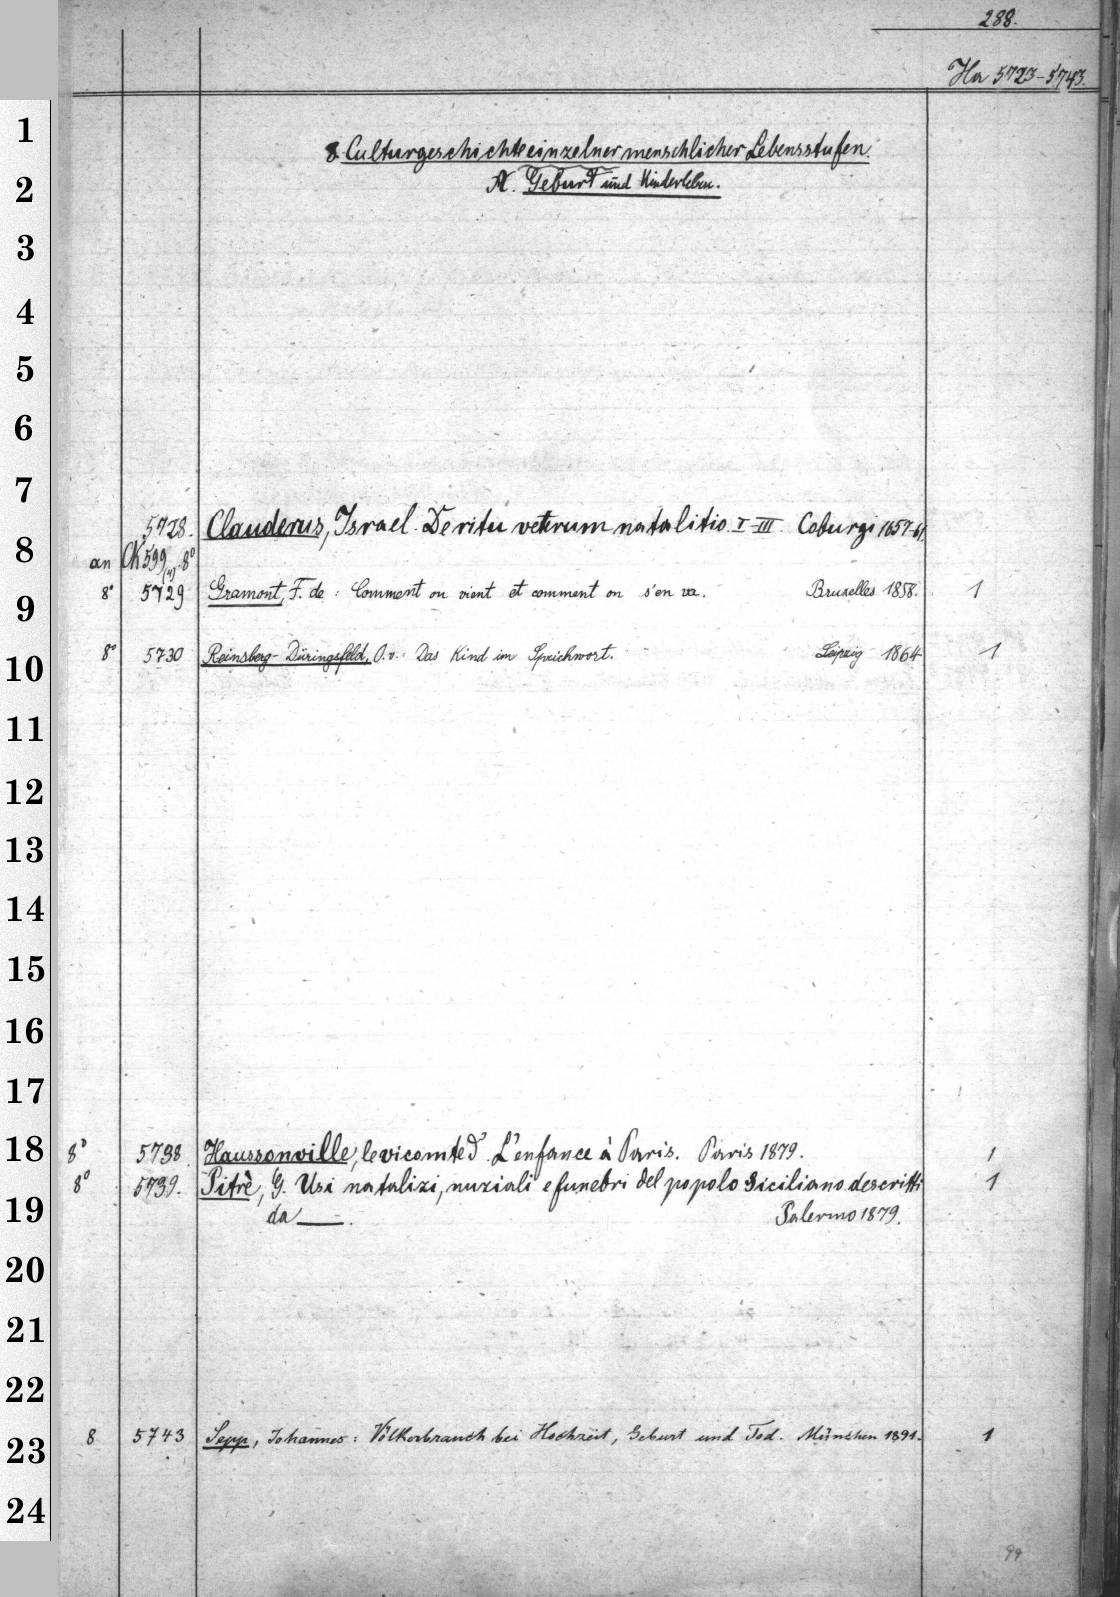 288.
Ha 5723-5743.
8. Culturgeschichte einzelner menschlicher Lebensstufen.
A. Geburt und Kinderleben.
5728. Clauderus, Israel. De ritu veterum natalitio I-III. Coburgi 1657-61.
an CK 599 (4) 8°
8° 5729 Gramont, F. de: Comment on vient et comment on s'en va. Bruxelles 1858. 1
8° 5730 Reinsberg-Düringsfeld, O. v.: Das Kind im Sprichwort. Leipzig 1864 1
8° 5738. Haussonville, le vicomte d'. L'enfance à Paris. Paris 1879. 1
8° 5739. Pitrè, G. Usi natalizi, nuziali e funebri del popolo Siciliano descritti 1
da ___. Palermo 1879.
8 5743 Sepp, Johannes: Völkerbrauch bei Hochzeit, Geburt und Tod. München 1891. 1
99
1
2
3
4
5
6
7
8
9
10
11
12
13
14
15
16
17
18
19
20
21
22
23
24